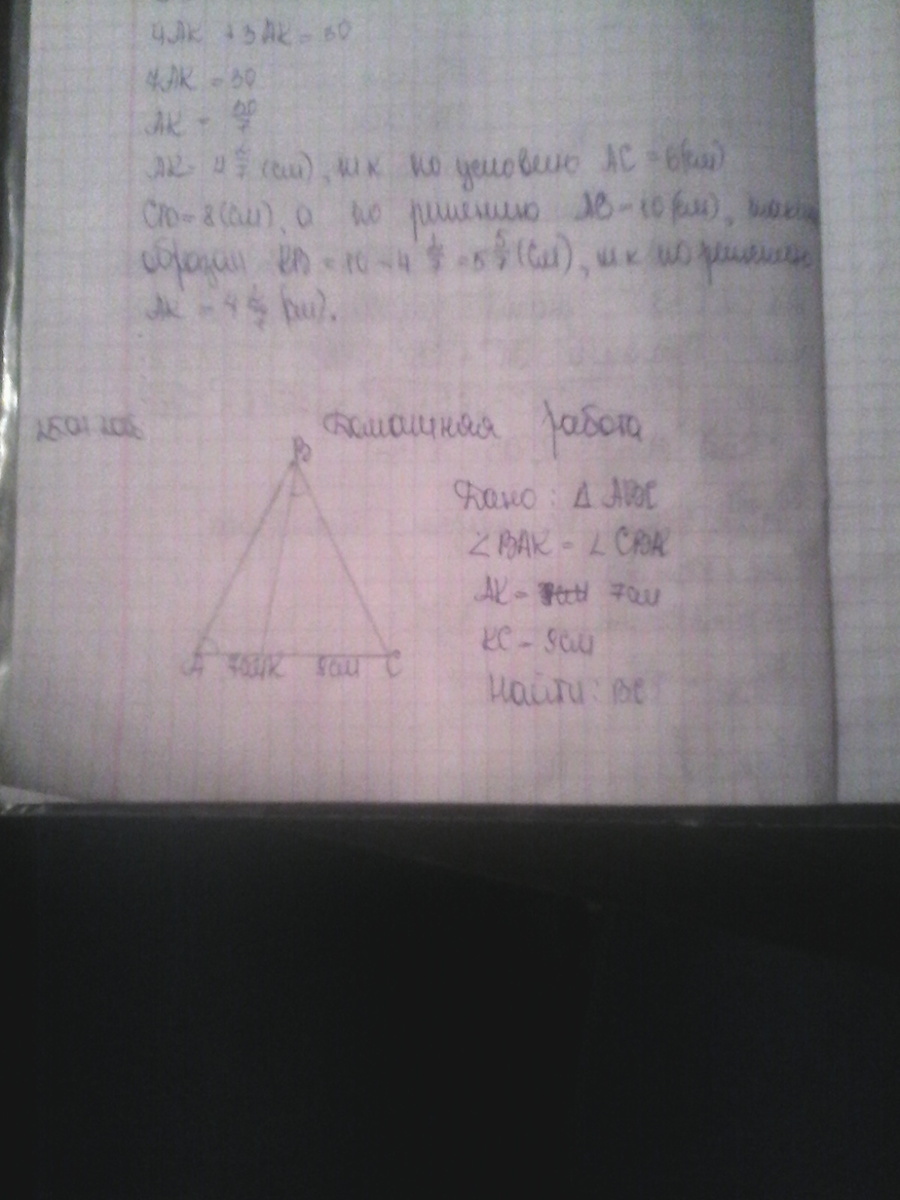 4AK + 3AK = 30
7AK = 30
AK = 30/7
AK = 4 2/7 (см), т к по условию AC = 6(см)
CB = 8(см), а по решению AB = 10(см), таким
образом KB = 10 - 4 2/7 = 5 5/7 (см), т к по решению
AK = 4 2/7 (см).
Домашняя работа
B
Дано: Δ ABC
∠BAK = ∠CBK
AK = 7см
KC = 9см
A 7см K 9см C
Найти: BC